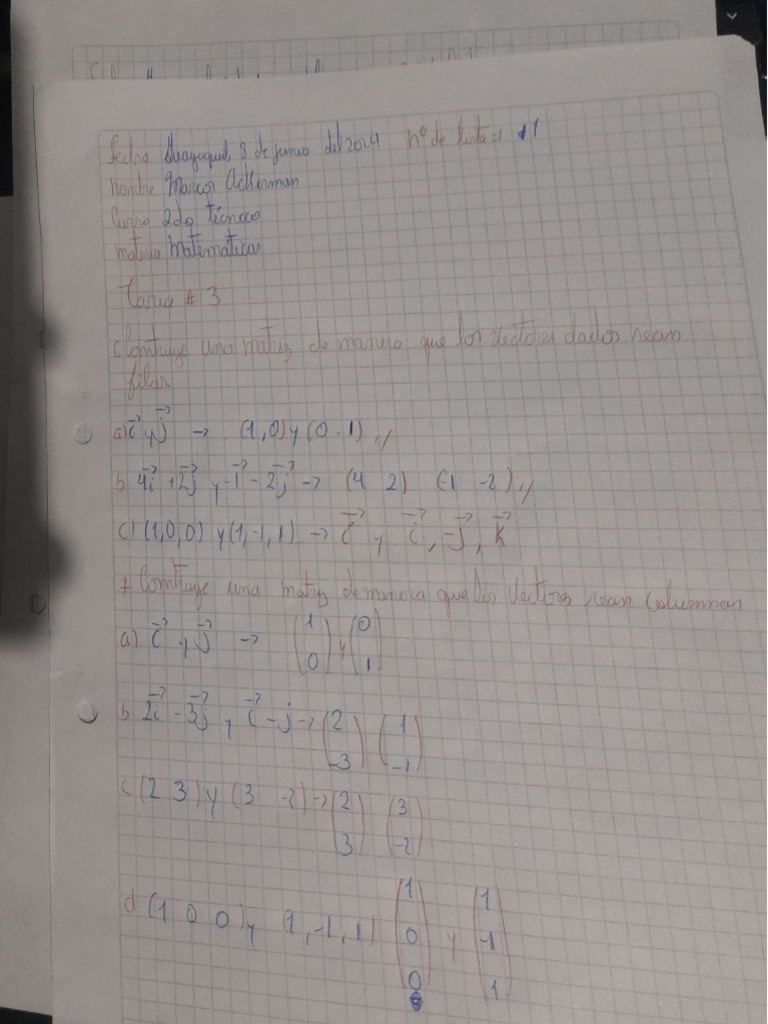 fecha Guayaquil, 8 de junio del 2024 nº de lista: 1
nombre Marcos Ackerman
Curso 2do técnico
materia Matematicas
Tarea # 3
Construye una matriz de manera que los vectores dados sean
filas
a) i⃗ y j⃗ → (1,0) y (0 1) //
b 4i⃗ + 2j⃗ y -1⃗ - 2j⃗ → (4 2) (-1 -2) //
c) (1,0,0) y (1,-1,1) → i⃗ y i⃗, -j⃗, k⃗
7 Construye una matriz de manera que los Vectores sean Columnas
a) i⃗ y j⃗ → (1 0) y (0 1)
b 2i⃗ - 3j⃗ y i⃗ - j → (2 -3) (1 -1)
c (2 3) y (3 -2) → (2 3) (3 -2)
d (1 0 0) y (1,-1,1) (1 0 0) y (1 -1 1)